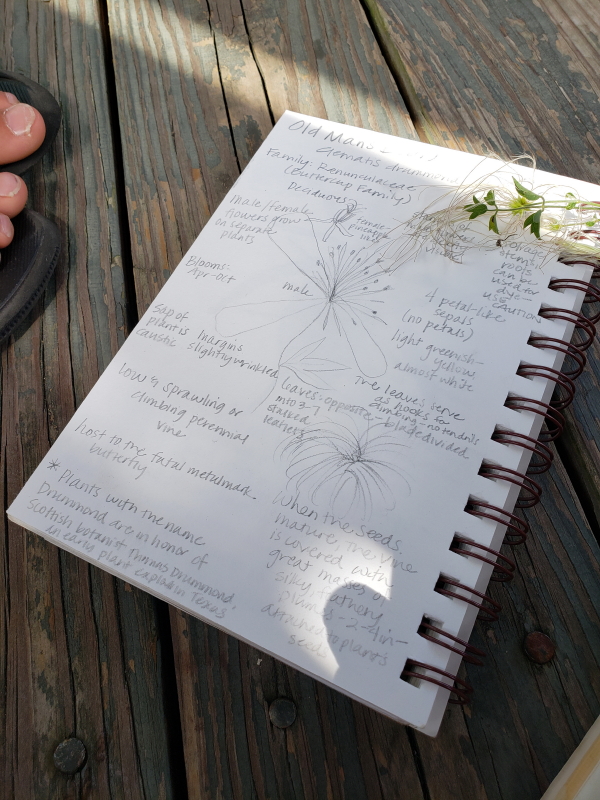 Old Mans
Clematis drummond
Family: Renunculaceae
(Buttercup Family)
Deciduous
male/female
flowers grow
on separate
plants
female-
pineapple
like
Blooms:
Apr-Oct
male
stems
roots
can be
used
dye-
use
caution
4 petal-like
sepals
(no petals)
light greenish-
yellow
almost white
Sap of
plant is
caustic
margins
slightly wrinkled
leaves: opposite
stalked
leaflets
- blade divided
The leaves serve
as hooks for
climbing - no tendrils
low & sprawling or
climbing perennial
vine
host to the fatal metalmark
butterfly
* Plants with the name
Drummond are in honor of
Scottish botanist Thomas Drummond,
in early plant in Texas
When the seeds
mature the vine
is covered with
great masses of
silky, feathery
plumes - 2-4 in-
attached to plant's
seeds